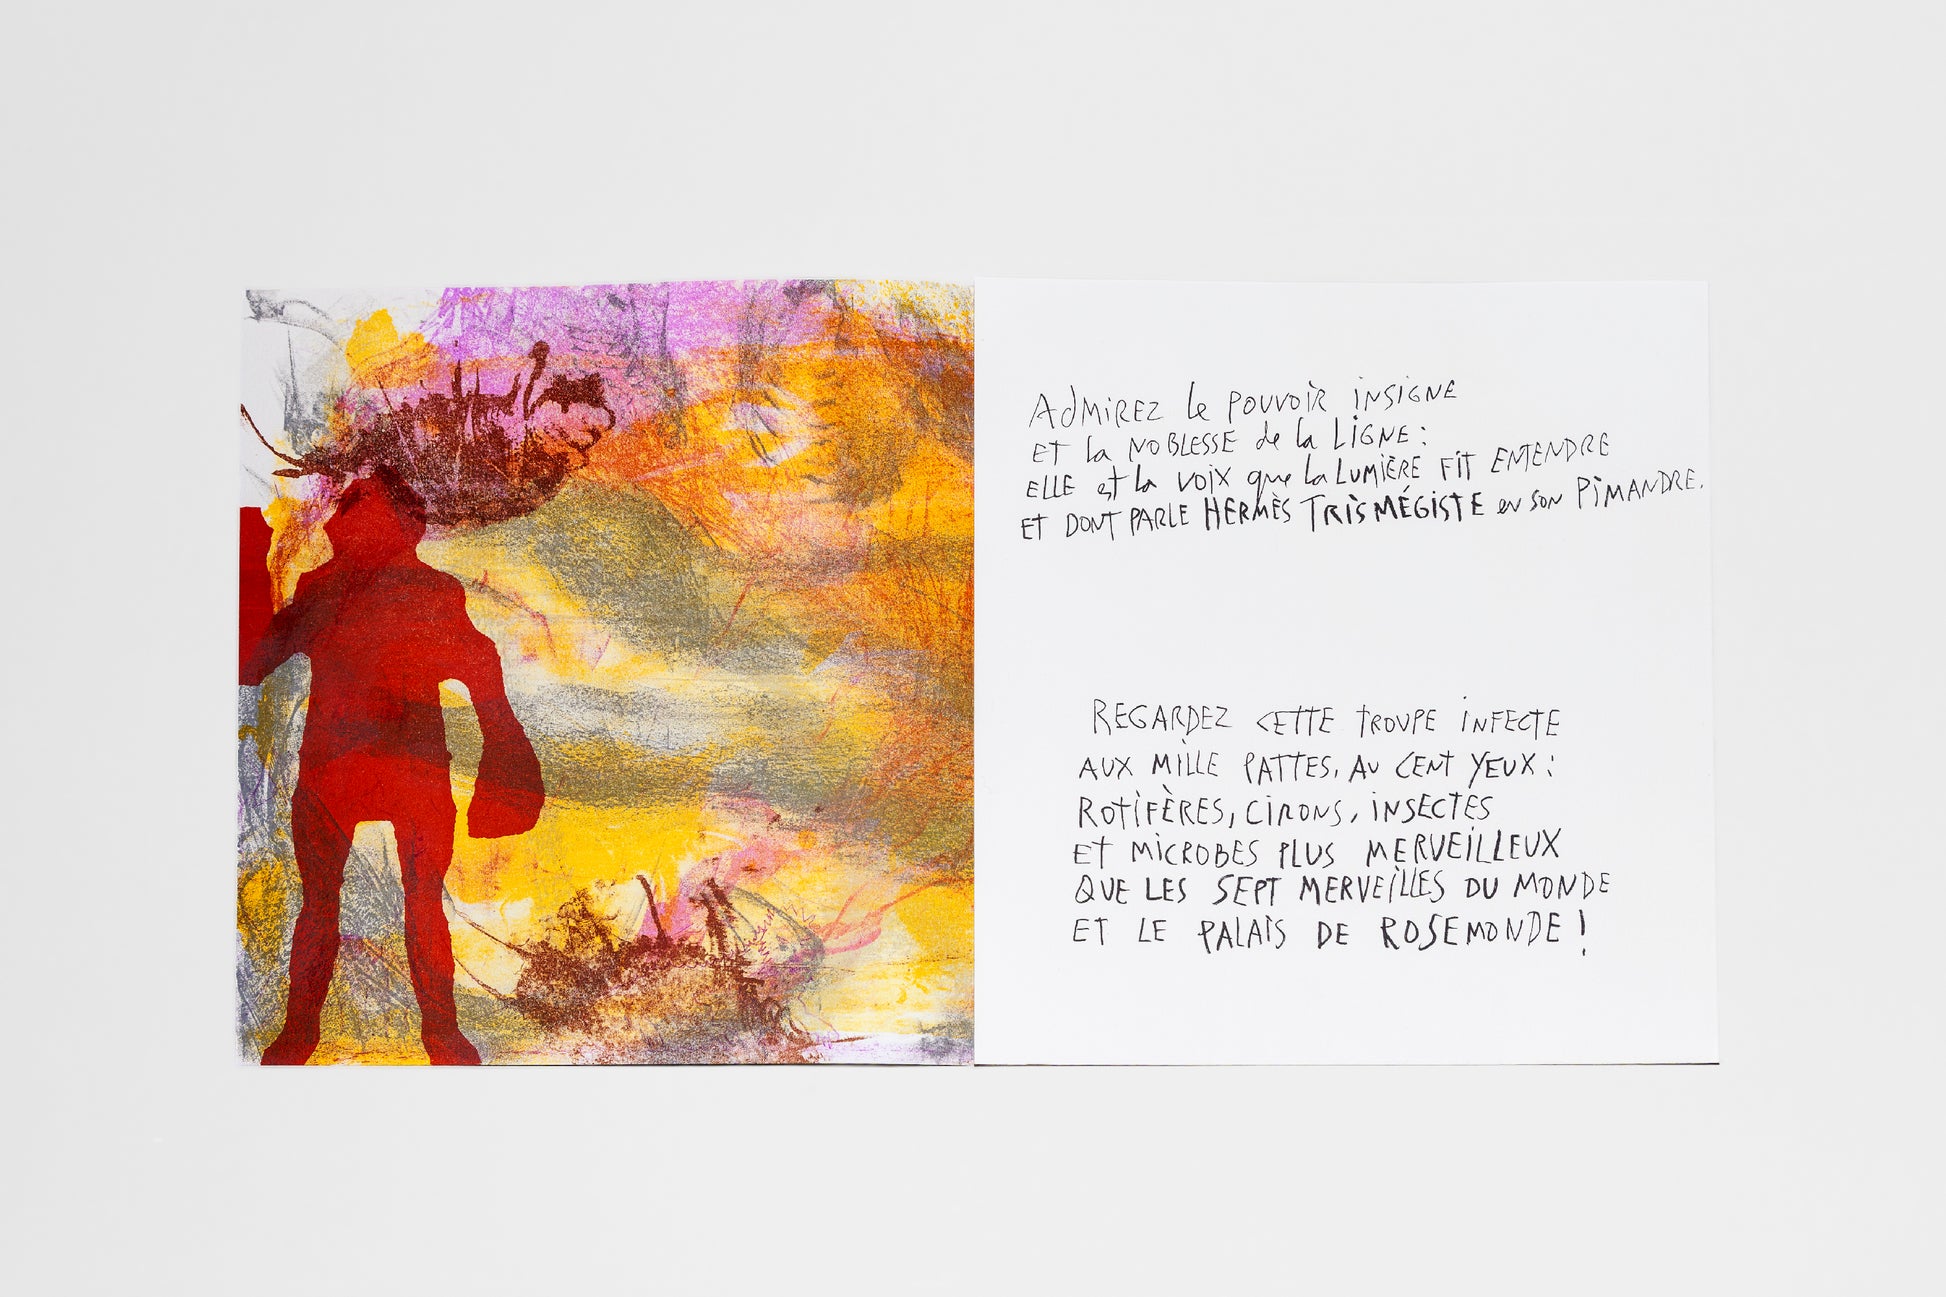 Admirez le pouvoir insigne
Et la noblesse de la ligne :
Elle est la voix que la lumière fit entendre
Et dont parle Hermès Trismégiste en son Pimandre.
Regardez cette troupe infecte
Aux mille pattes, au cent yeux :
Rotifères, cirons, insectes
Et microbes plus merveilleux
Que les sept merveilles du monde
Et le palais de Rosemonde !